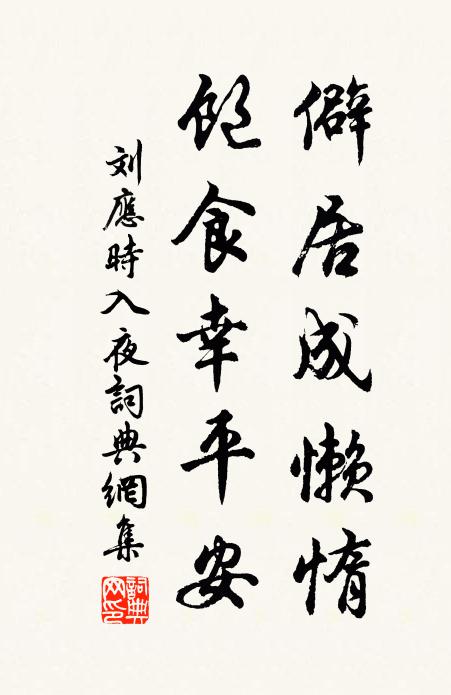 僻居成懒惰
飽食幸平安
刘應時入夜詞典網集
詞典网印